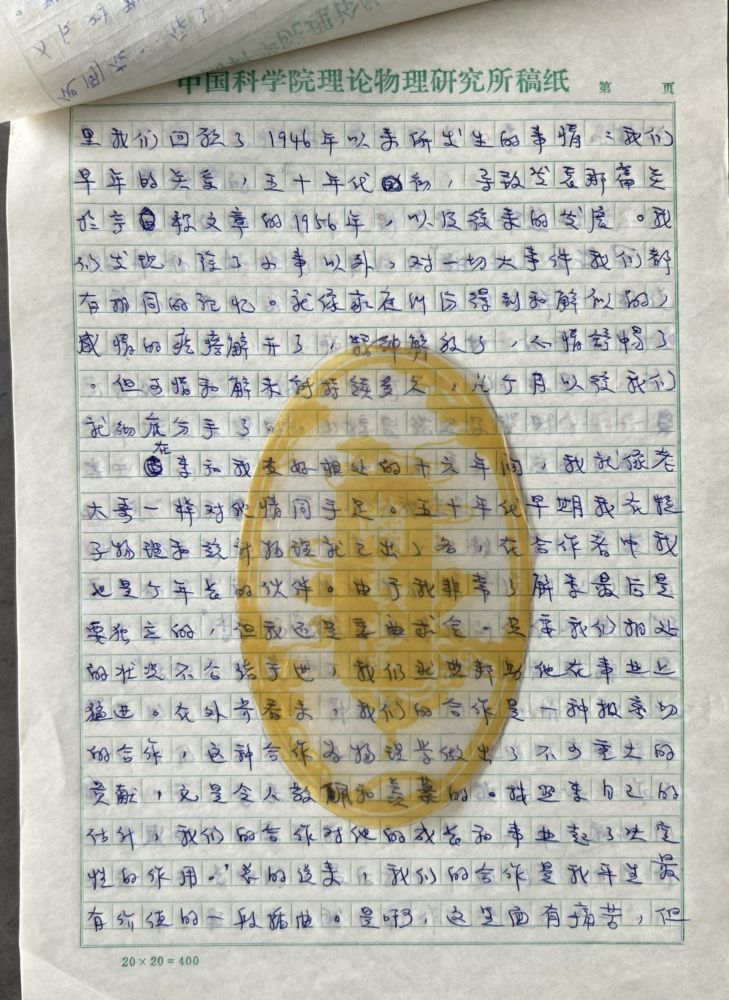 中国科学院理论物理研究所稿纸 第 页
里我们回顾了1946年以来所发生的事情：我们
早年的关系，五十年代初，导致发表那篇关
于宇称文章的1956年，以及后来的发展。我
们发现，除了小事以外，对一切大事件我们都
有相同的记忆。就像家庭中应得到和解似的，
感情的疙瘩解开了，精神解放了，心情舒畅了
。但可惜和解未能持续多久，几个月以后我们
就彻底分手了
在李和我友好相处的十六年间，我就像老
大哥一样对他情同手足。五十年代早期我在粒
子物理和统计物理就已出了名，在合作者中我
也是个年长的伙伴。由于我非常了解李最后是
要独立的，但我还是委曲求全。只要我们相处
的状况不会给予
猛进。在外界看来，我们的合作是一种极亲切
的合作，这种合作为物理学做出了不少重大的
贡献，它是令人敬酬和羡慕的。按照李自己的
估计，我们的合作对他的成长和事业起了决定
性的作用。总的说来，我们的合作是我平生最
有价值的一段插曲。是啊，这里面有痛苦，但
20×20=400